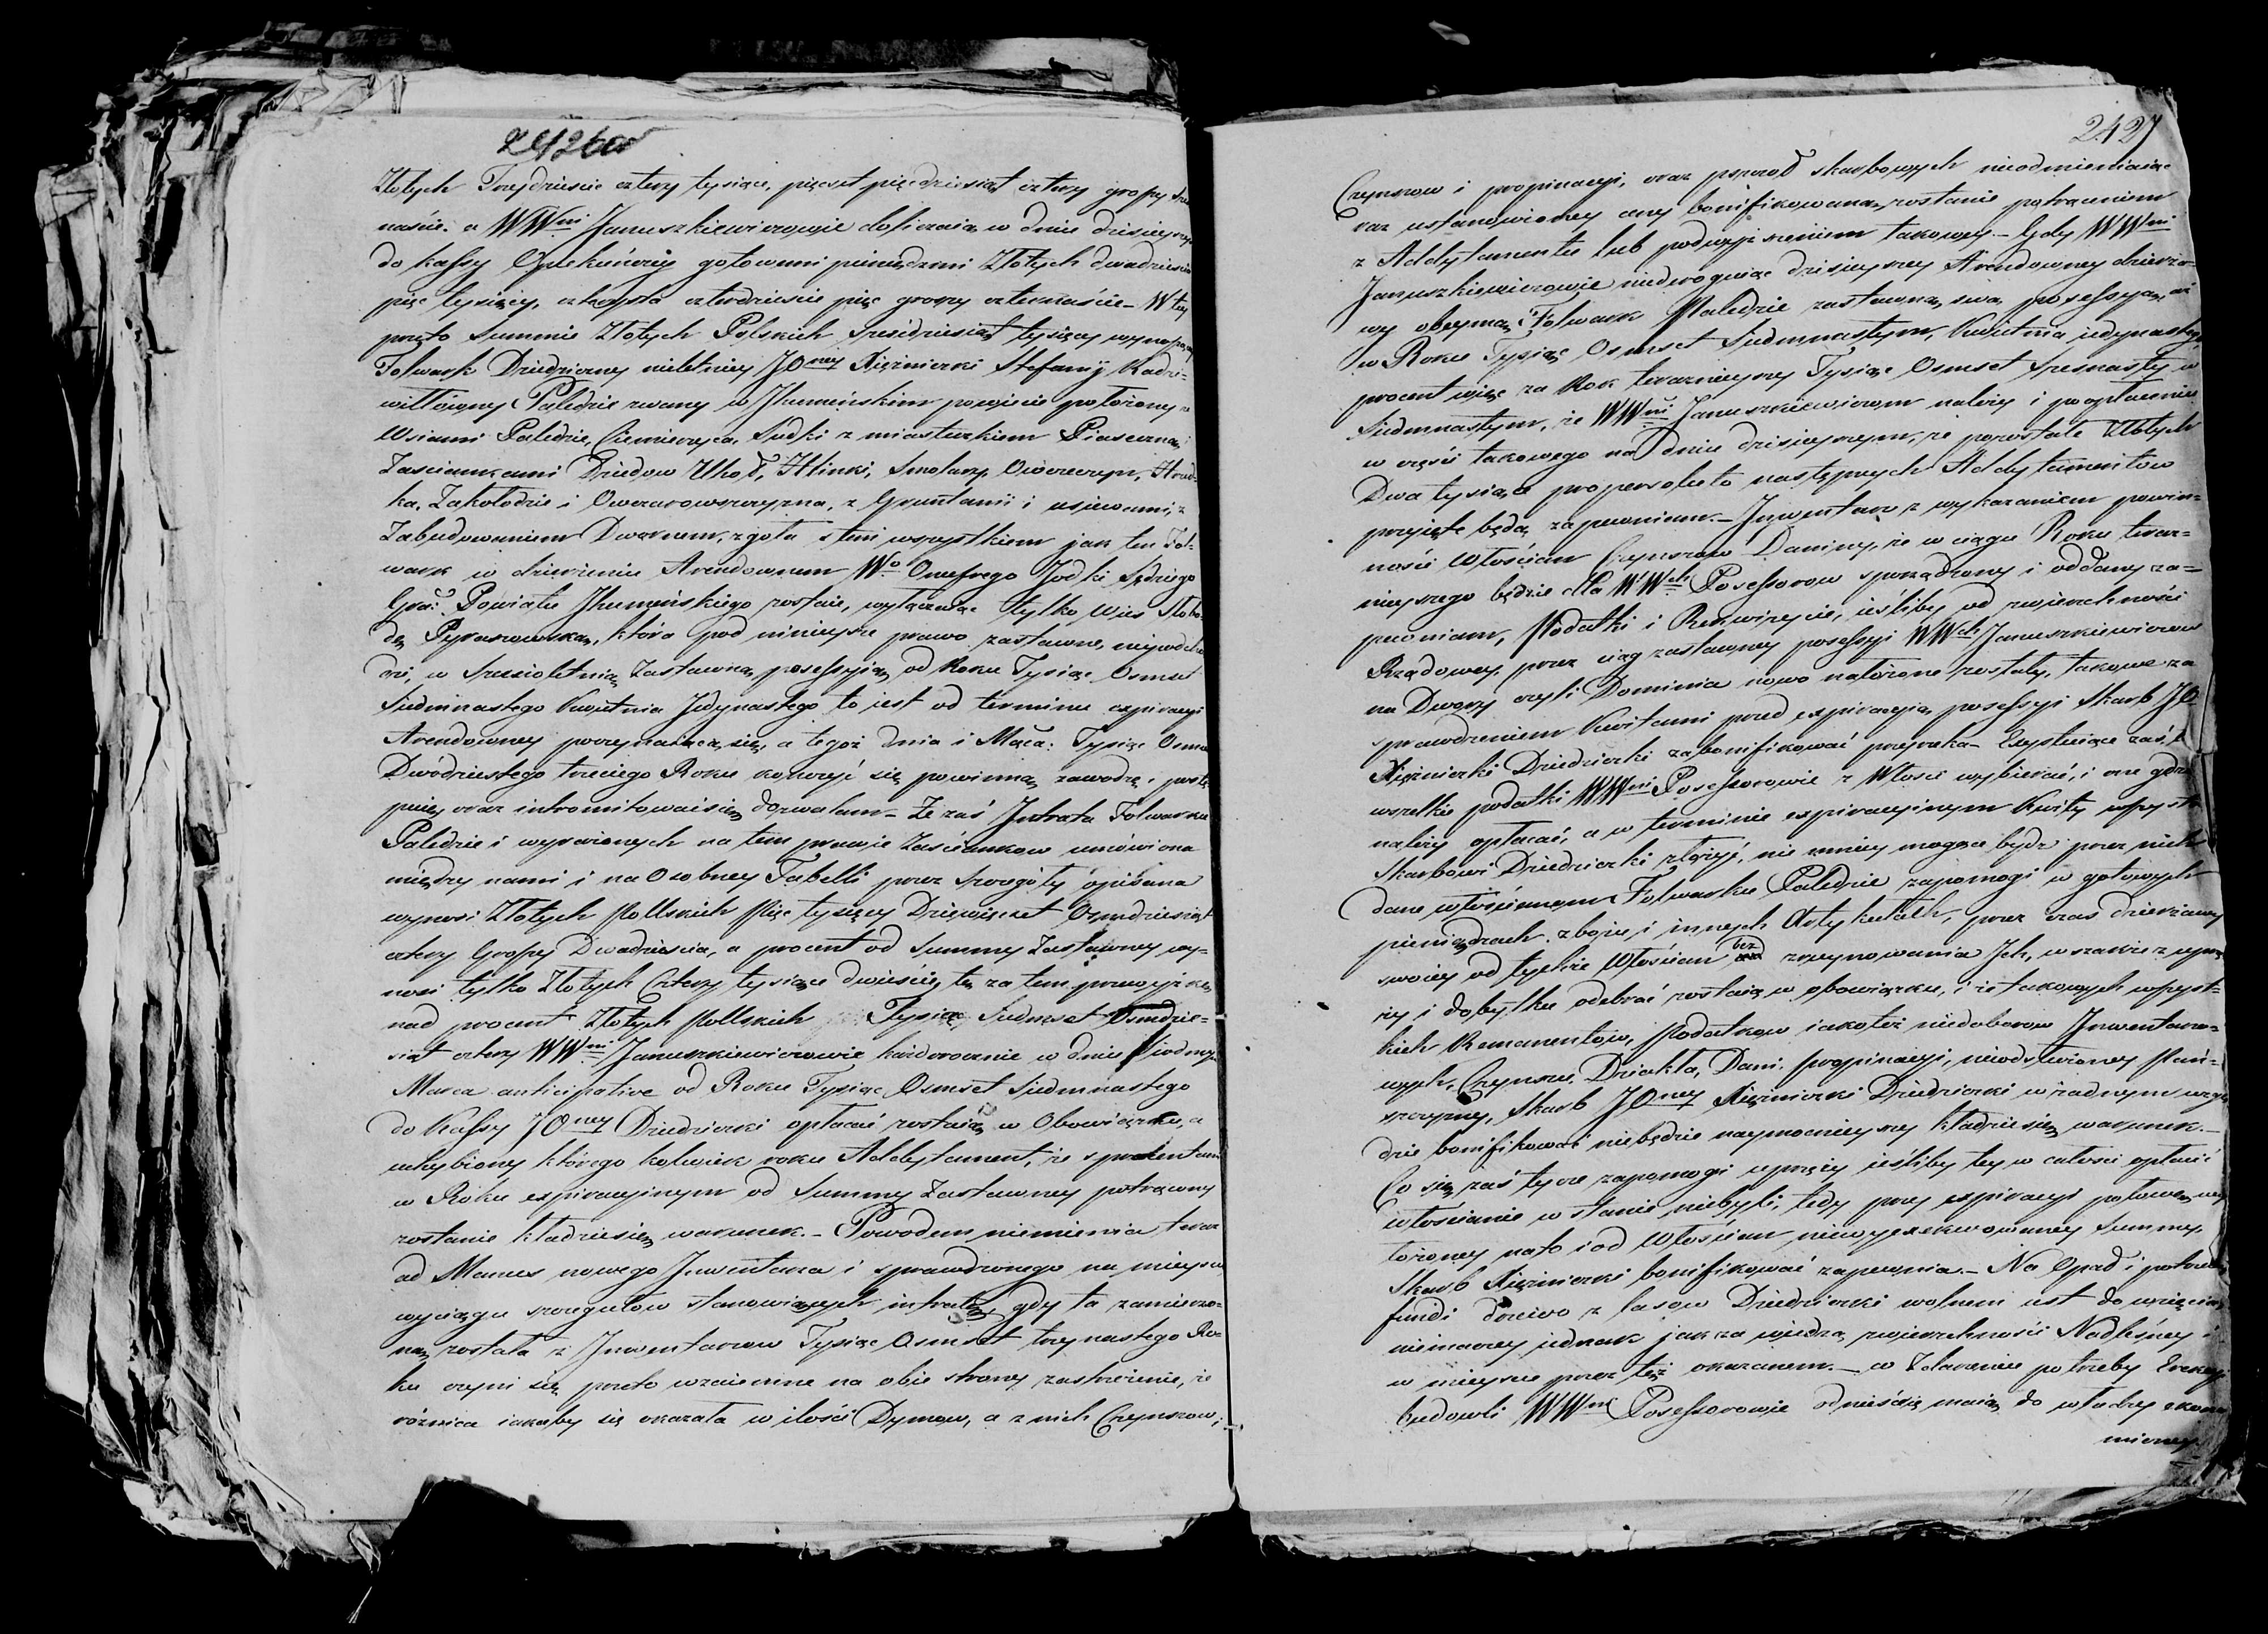 2426 ov
Złotych Trzydzieście cztery tysiące, pięcset pięcdziesiąt cztery groszy
naście. a WWni Januszkiewiczowie doliczaią w dniu dzisieyszym
do Kassy Opiekuńczey gotowemi pieniędzmi Złotych dwadzieścia
pięc tysięcy, czterysta czterdzieście pięc groszy czternaście – W tey
przeto Summie Złotych Polskich Sześćdziesiąt tysięcy wynoszącey
Folwark Dziedziczny nieletniey JOney Xiężniczki Stefanij Radzi=
wiłłowny Paledzie zwany w Jhumeńskim powiecie położony z
Wsiami Paledzie, Ciemierzyca, Sudki z miasteczkiem Piaseczna, i
Zaściankami Dziedow Uhoł, Hlinki, Smolarz, Owieczczyn, Hrud=
ka, Zakołodzie i Owczarowszczyzna, z Gruntami i usiewami, z
Zabudowaniem Dwornem, zgoła z tem wszystkiem jak ten Fol=
wark w dzierżeniu Arendownem Wo Onufrego Jodki Sędziego
Gra: Powiatu Jhumeńskiego zostaie, wyłączaiąc tylko Wieś Słobo=
dę Pyraszowską, która pod ninieysze prawo zastawne, niewcho
dzi, w Sześcioletnią Zastawną possessyią, od Roku Tysiąc Osmset
Siedmnastego Kwietnia Jedynastego to iest od terminu expiracyi
Arendowney poczynaiącą się, a tegoż dnia i Mąca: Tysiąc Osmset
Dwódziestego trzeciego Roku kończyć się powinną zawodzę, postę
puię oraz intromitowaćsię dozwalam – Że zaś Jntrata Folwarku
Paledzie i wyrażonych na tem prawie Zaścianków umówiona
między nami i na Osobney Tabelli przez Szczegóły opisana
wynosi Złotych Pollskich Pięc tysięcy Dziewięcset Osmdziesiąt
cztery Groszy Dwadzieścia, a procent od Summy Zastawney wy=
nosi tylko Złotych Cztery tysiące dwieście, tę za tem przewyżkę
nad procent Złotych Pollskich Tysiąc Siedmset Osmdzie=
siąt cztery WWni Januszkiewiczowie każdorocznie w dniu Siodmym
Marca anticipative od Roku Tysiąc Osmset Siedmnastego
do Kassy JOney Dziedziczki opłacać zostaią w Obowiązku, a
uchybiony którego kolwiek roku Addytament, że z procentem
w Roku expiracyinym od Summy Zastawney potrącony
zostanie kładziesię warunek. – Powodem niemienia teraz
od Manus nowego Jnwentarza i sprawdzonego na mieyscu
wyciągu szczegułow stanowiących intratę, gdy ta zamierzo=
ną została z Jnwentarzow Tysiąc Osmset trzynastego Ro=
ku czyni się przeto wzaiemne na obie strony zastrzeżenie, że
różnica iakaby się okazała w ilości Dymow, a z nich Czynszow,
2427
Czynszow i propinacyi, oraz poprząd skarbowych nieodmieniaiąc
raz ustanowioney ceny bonifikowaną zostanie potrąceniem
z Addytamentu lub podwyższeniem takowey. – Gdy WWni
Januszkiewiczowie niedroguiąc dzisieyszey Arendowney dzierża=
wy obeymą Folwark Paledzie zastawną swą possessyą, aż
w Roku Tysiąc Osmset Siedmnastym, Kwietnia jedynastego
procent więc za Rok teraznieyszy Tysiąc Osmset Szesnasty w
Siedmnastym, że WWni Januszkiewiczom należy i po opłaceniu
w części takowego na dniu dzisieyszym, że pozostałe Złotych
Dwa tysiące pro persoluto następnych Addytamentow
przyięte będą zapewniam. – Jnwentarz z wykazaniem powin=
ności Włościan Czynszow Daniny, że w ciągu Roku teraz=
nieyszego będzie dla WWch Possessorow sporządzony i oddany za=
pewniam, Podatki i Rekwizycie, ieśliby od zwierzchności
Rządowey przez ciąg zastawney possessyi WWch Januszkiewiczow
na Dwory czyli Dominia nowo nałożone zostały, takowe za
sprawdzeniem Kwitami przed expiracyią possessyi Skarb JO
Xiężniczki Dziedziczki zabonifikować przyrzeka – Exystuiące zaś,
wszelkie podatki WWni Possessorowie z Włosci wybierać, i one gdzie
należy opłacać, a w terminie expiracyinym Kwity wszyst
Skarbowi Dziedziczki złożyć, nie mniey mogące bydz przez nich
dane włościanom Folwarku Paledzie zapomogi w gotowych
pieniądzach zbożu i innych Artykułach, przez czas dzierżawy
swoiey od tychże Włościan bez zruynowania Jch, wszakże z uprzę
ży i dobytku odebrać zostaią w obowiązku, i że takowych wszyst=
kich Remanentow, Podatkow iakoteż niedoborow Jnwentarzo=
wych, Czynszu, Dziakła, Dani, propinacyi, nieodstużoney Pań=
szczyzny, Skarb JOney Xiężniczki Dziedziczki w żadnym wzglę
dzie bonifikować niebędzie naymocnieyszy kładziesię warunek. –
Co się zaś tycze zapomogi uprzęży ieśliby tey w całości opłacić
włościanie w stanie niebyli, tedy przy expiracyi połowę wy
łożoney na to i od Włościan niewyexekwowaney Summy,
Skarb Xiężniczki bonifikować zapewnia. – Na Opał i potrzeb
fundi drzewo z lasow Dziedziczki wolnem iest do wzięcia,
nieinaczey jednak jak za wiedzą zwierzchności Nadleśney i
w mieyscu przez też okazanem. – w Zdarzeniu potrzeby Erekcyi
budowli WWni Possessorowie odnieśćsię maią do władzy ekono
miczney